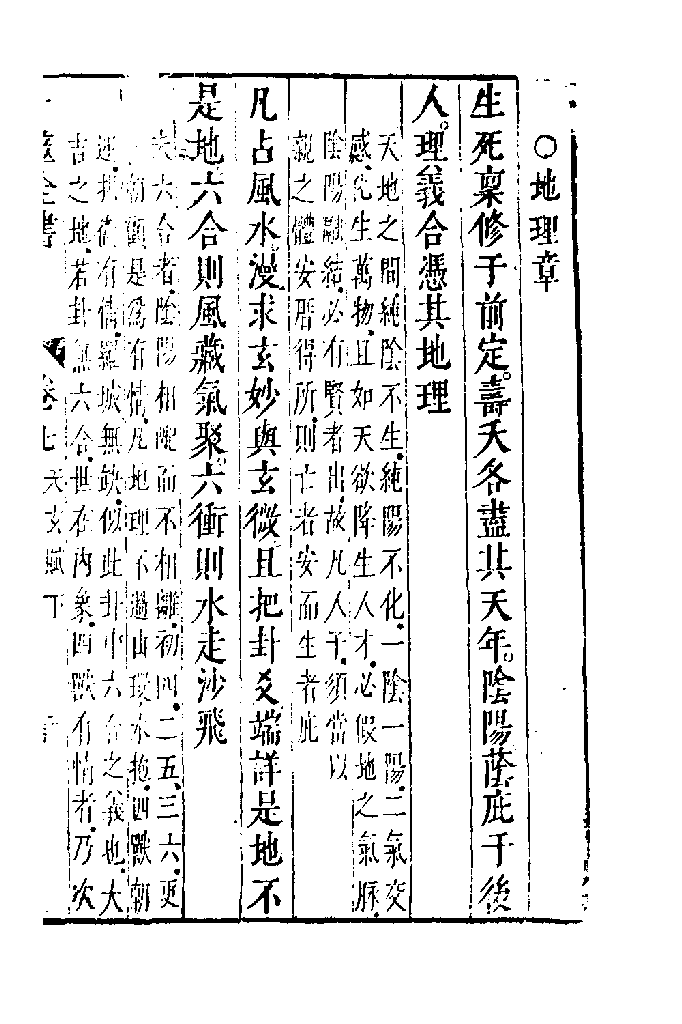 ○地理章
生死稟修于前定。壽夭各盡其天年。陰陽蔭庇于後
人。理義合憑其地理
天地之間、純陰不生、純陽不化、一陰一陽、二氣交
感、先生萬物、且如天欲降生人才、必假地之氣脉、
陰陽融結、必有賢者出、故凡人子、須當以
親之體安厝得所、則亡者安而生者庇
凡占風水、漫求玄妙與玄微、且把卦爻端詳是地不
是地、六合則風藏氣聚、六衝則水走沙飛
六合者、陰陽相配而不相離、初四、二五、三六、更
朝顧是為有情、凡地理不過山環水抱、四獸朝
迎、羅城無缺、似此卦中六合之義也、大
吉之地、若卦無六合、世在內象、四獸有情者、乃次
全書 卷七 天玄賦下